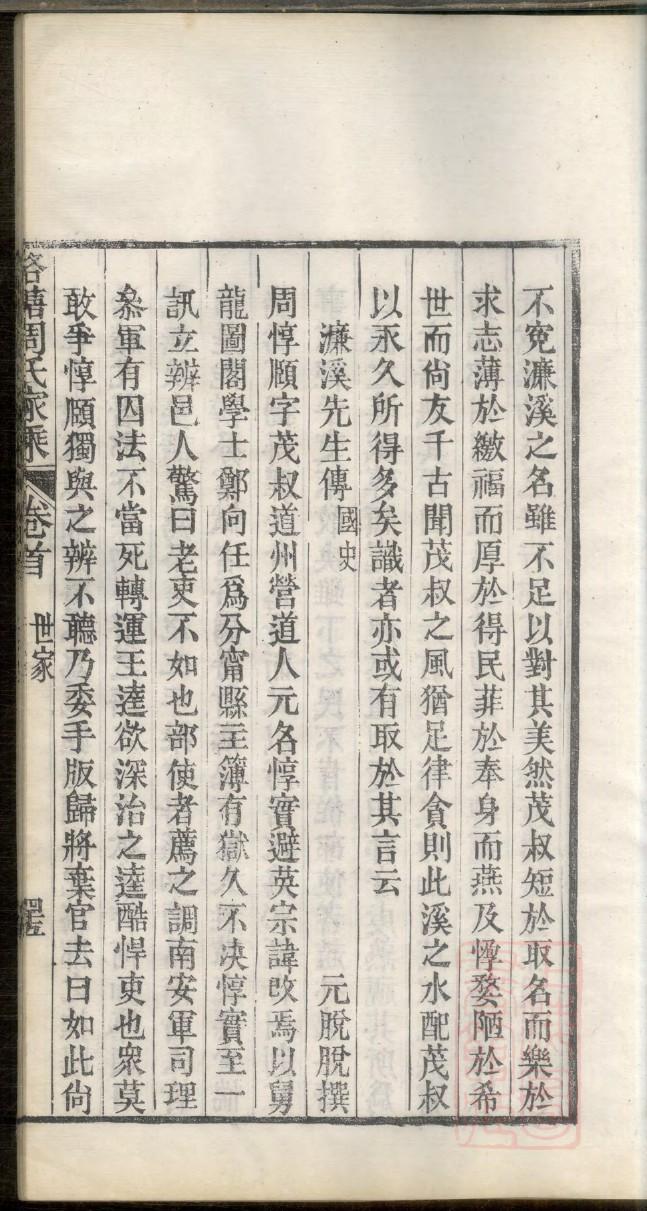 不究濂溪之名雖不足以對其美然茂叔短於取名而樂於
求志薄於繳福而厚於得民菲於奉身而燕及惸嫠陋於希
世而尙友千古聞茂叔之風猶足律貪則此溪之水配茂叔
以永久所得多矣識者亦或有取於其言云
濂溪先生傳 國史 元脫脫撰
周惇頤字茂叔道州營道人元名惇實避英宗諱改焉以舅
龍圖閣學士鄭向任爲分甯縣主簿有獄久不决惇實至一
訊立辨邑人驚曰老吏不如也部使者薦之調南安軍司理
叅軍有囚法不當死轉運王逵欲深治之逵酷悍吏也衆莫
敢爭惇頤獨與之辨不聽乃委手版歸將棄官去曰如此尙
周氏家乘 卷首 世家